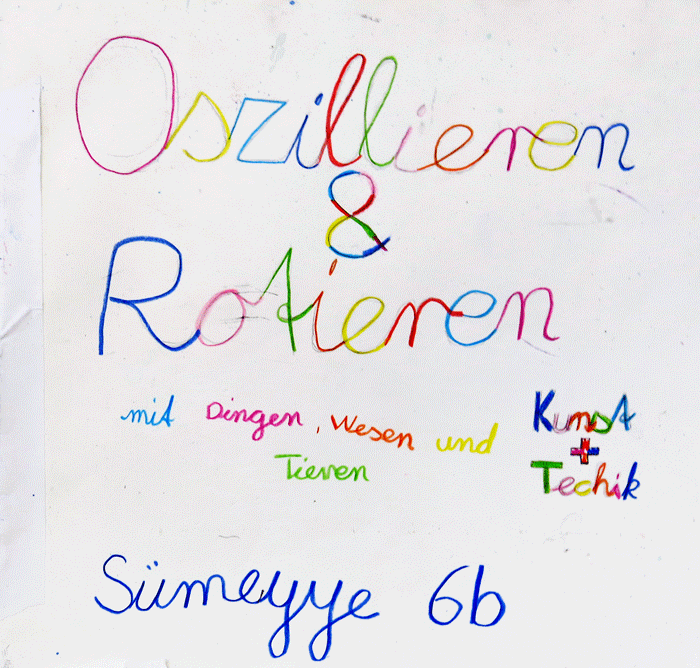 Oszillieren
&
Rotieren
mit Dingen, Wesen und
Tieren
Kunst
+
Techik
Sümeyye 6b